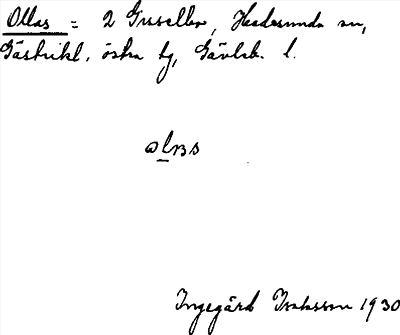 Ollas = 2 Grusellas, Hedesunda sn,
Gästrikl. östra tg, Gävleb. l.
Ingegärd Isaksson 1930